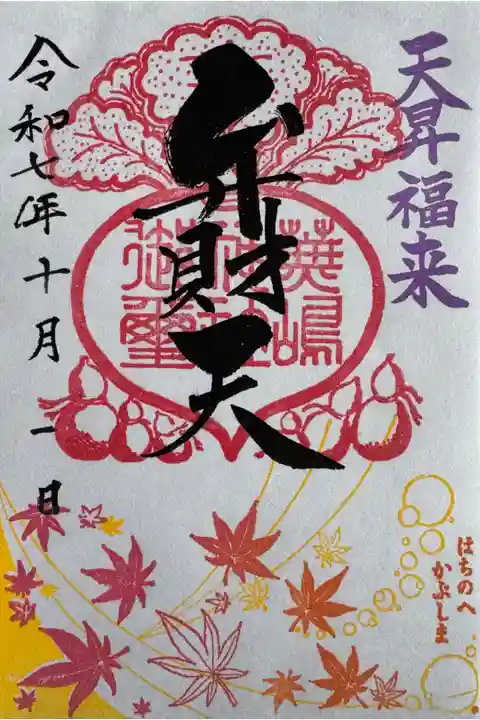 天昇福来
弁財天
蕪嶋
令和七年十月一日
はちのへ
かぶしま